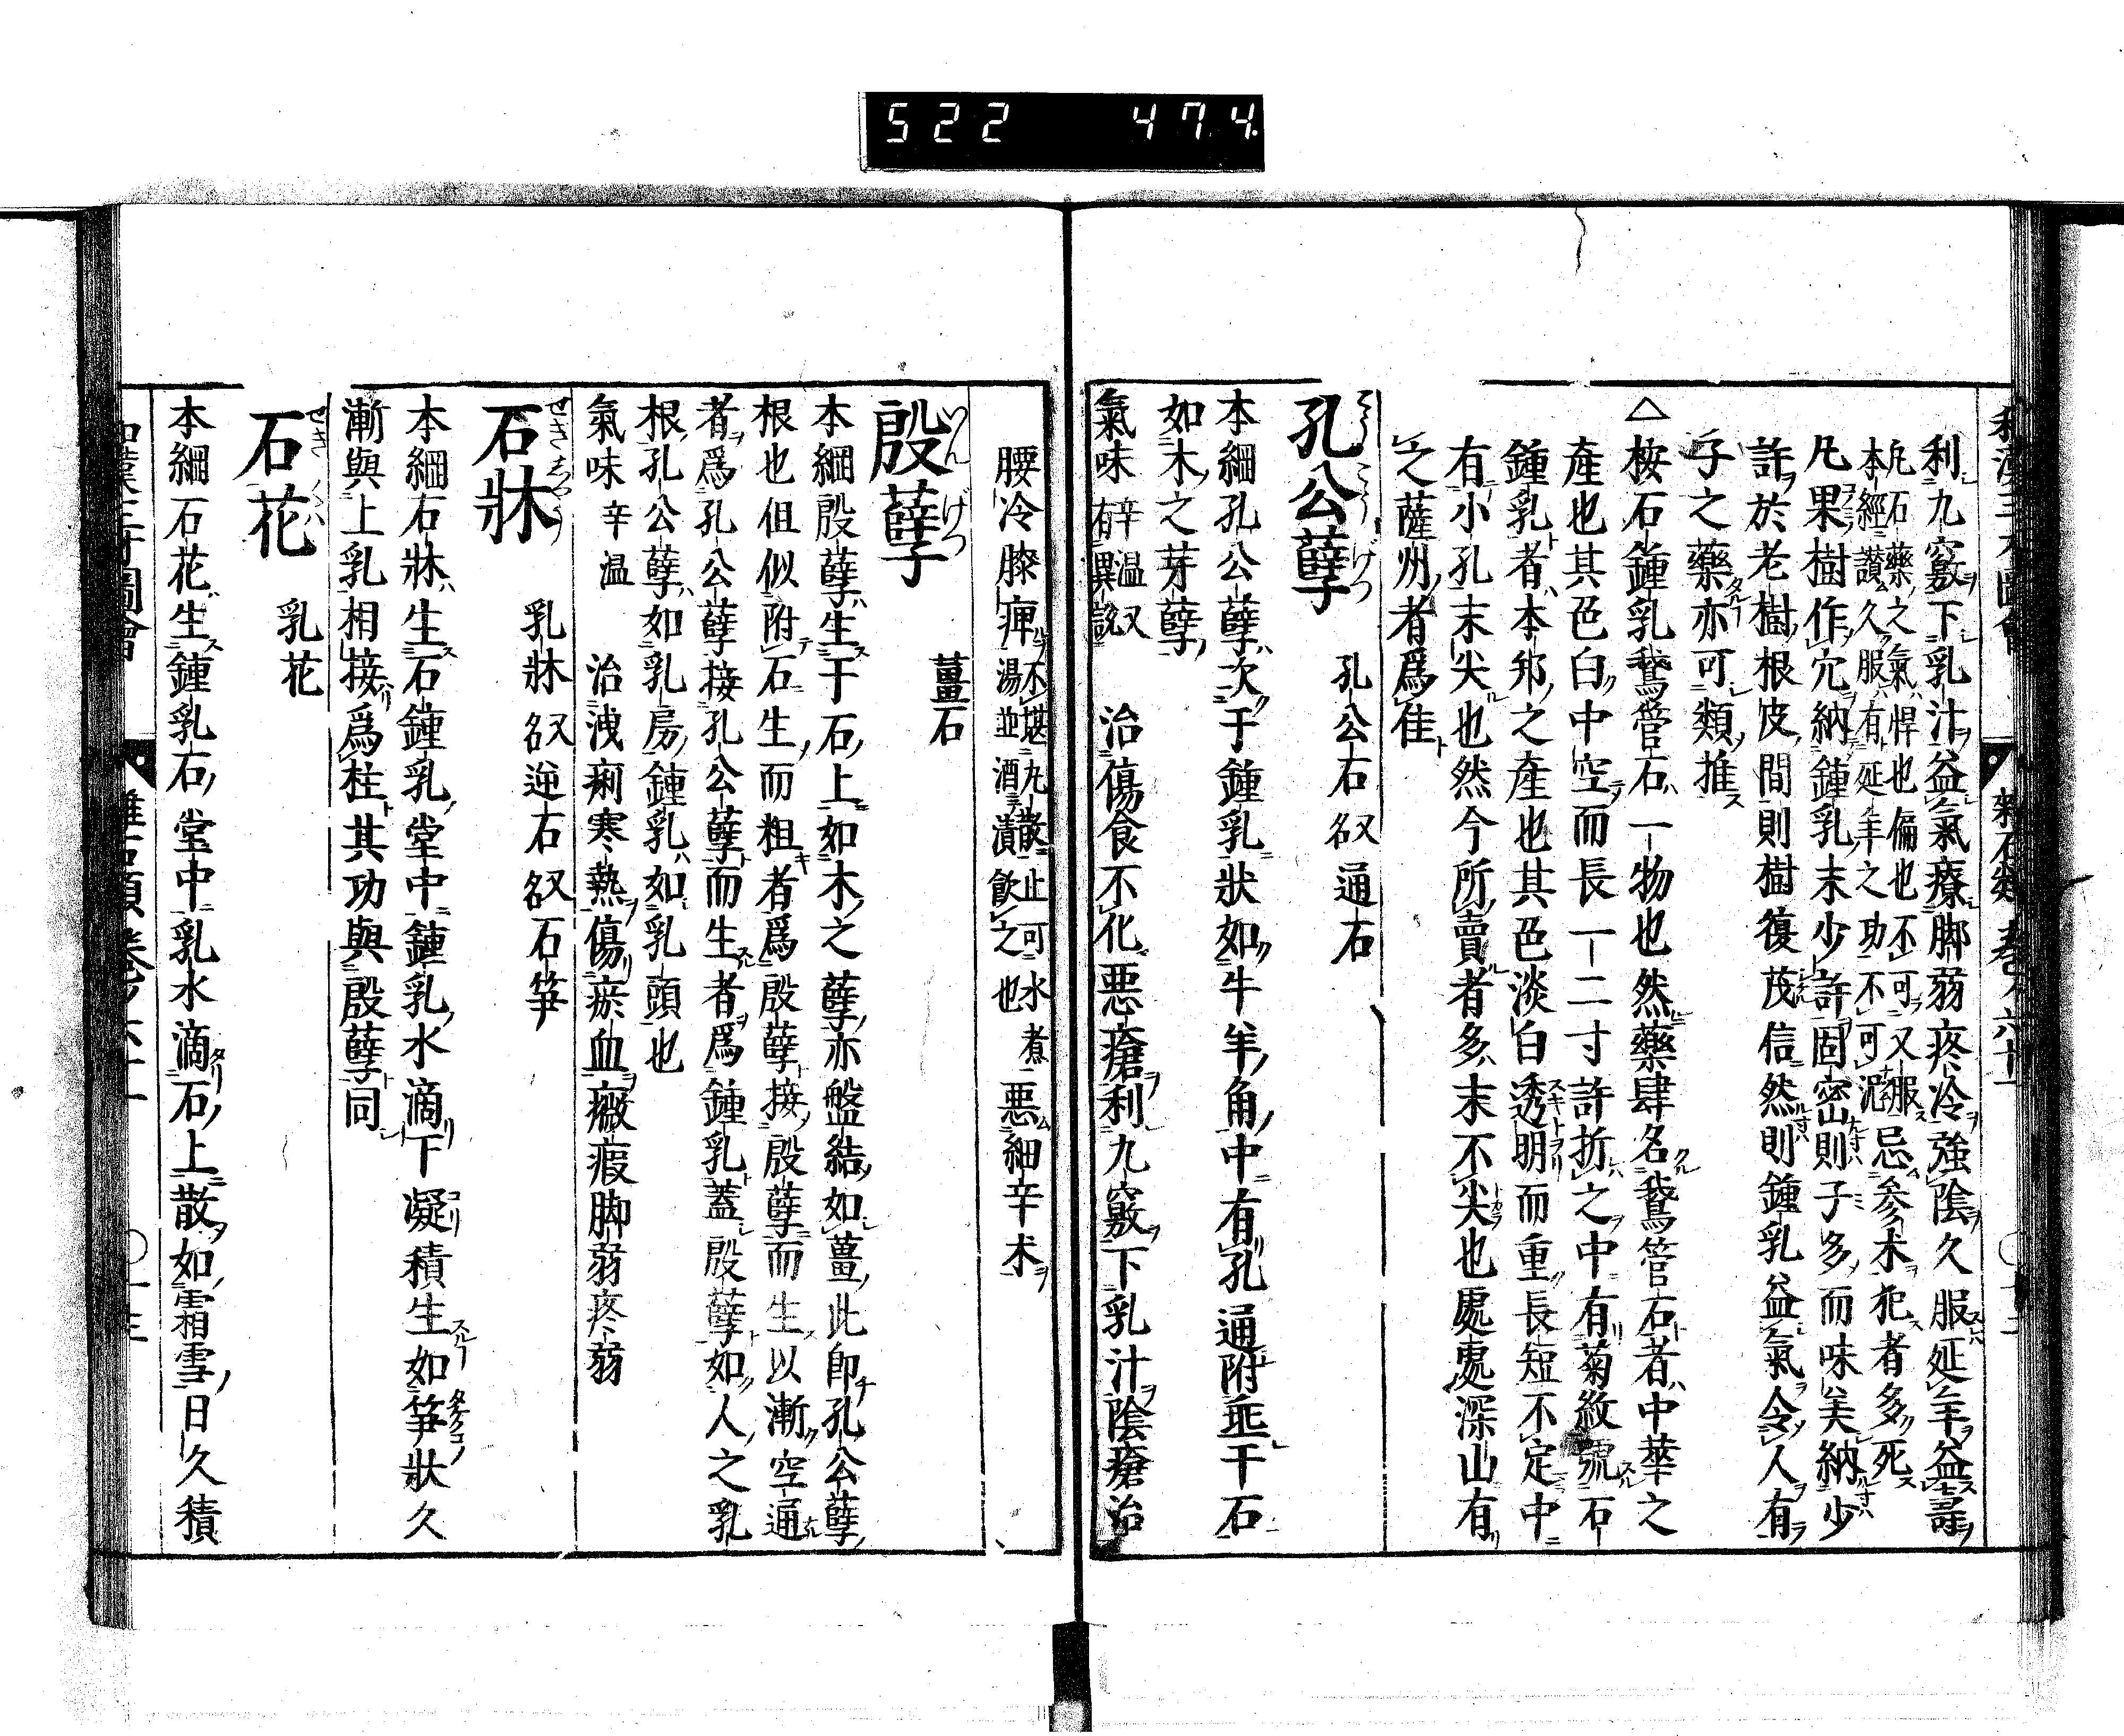 522 474
和漢三才圖會 雜石類 卷ノ六十一
利九竅下乳汁益氣療脚弱疼冷強陰久服延年益壽
凡石藥之氣悍也偏也不可又服忌參朮犯者多死
本經讃久服有延年之功不可泥
凡果樹作穴納鍾乳末少許固密則子多而味美納少
許於老樹根皮間則樹復茂信然則鍾乳益氣令人有
子之藥亦可類推
△桉石鍾乳鵞管石一物也然藥肆名鵞管石者中華之
產也其色白中空而長一二寸許折之中有菊紋號石
鍾乳者本邦之產也其色淡白透明而重長短不定中
有小孔末尖也然今所賣者多末不尖也處處深山有
之薩州者爲佳
孔公孽 こうこうげつ 孔公石 又名 通石
本綱孔公孽次于鍾乳狀如牛羊角中有孔通附垂于石
如木之芽孽
氣味 辛温又有異說 治傷食不化惡瘡利九竅下乳汁陰瘡治
腰冷膝痺 不堪丸散止可水煮湯並酒漬飲之也 惡細辛朮
殷孽 いんげつ 薑石
本綱殷孽生于石上如木之孽亦盤結如薑此即孔公孽
根也但似附石生而粗者爲殷孽接殷孽而生以漸空通
者爲孔公孽接孔公孽而生者爲鍾乳蓋殷孽如人之乳
根孔公孽如乳房鍾乳如乳頭也
氣味 辛温 治洩痢寒熱傷瘀血癥瘕脚弱疼弱
石牀 せきしやう 乳牀 又名 逆石 又名 石笋
本綱石牀生石鍾乳堂中鍾乳水滴下凝積生如笋狀久
漸與上乳相接爲柱其功與殷孽同
石花 せきくハ 乳花
本綱石花生鍾乳石堂中乳水滴石上散如霜雪日久積
和漢三才圖會 雜石類 卷ノ六十一 〇十三